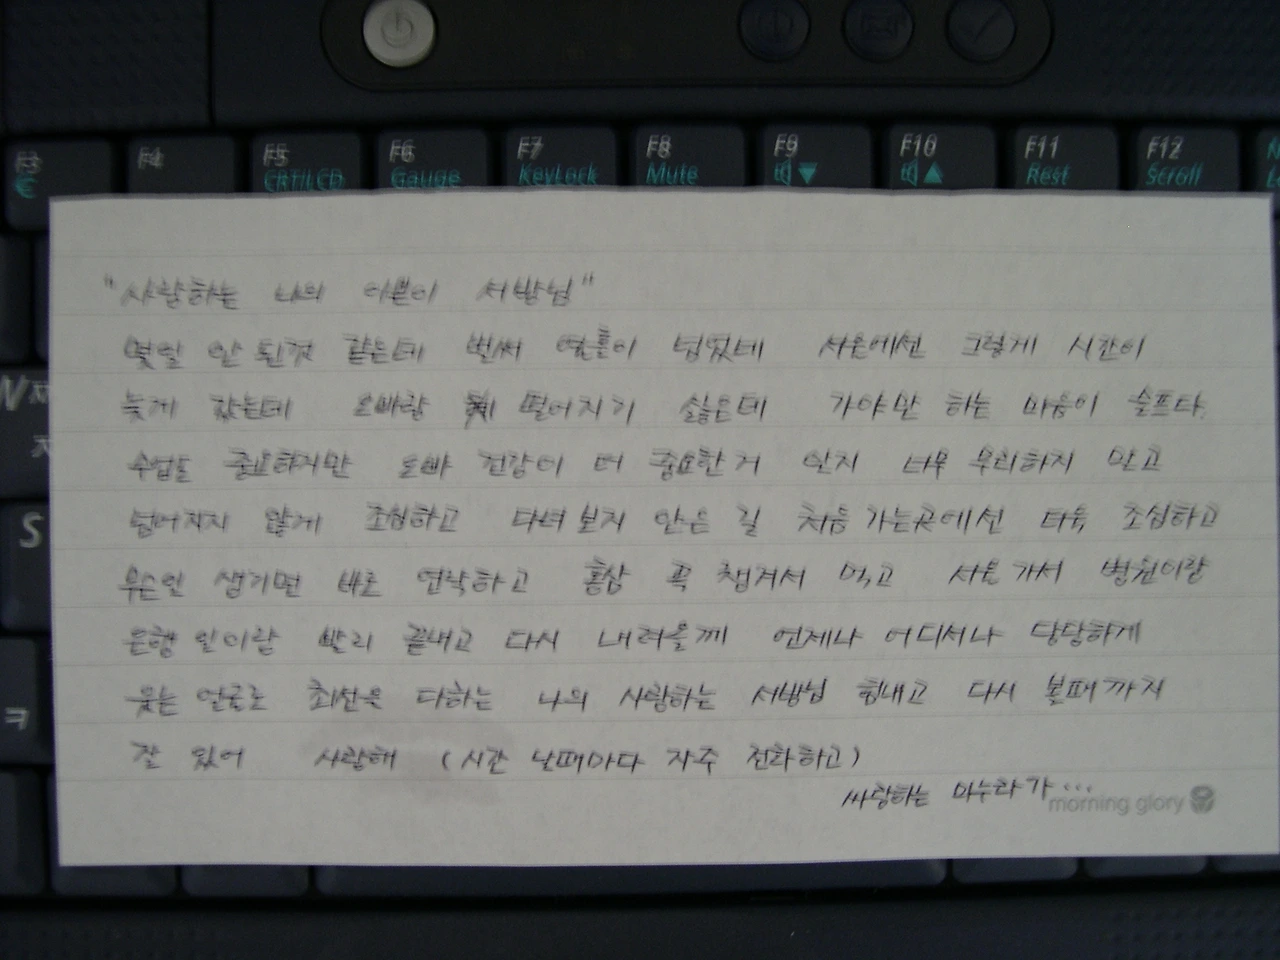 F3 F4 F5 F6 F7 F8 F9 F10 F11 F12
€ CRT/LCD Gauge KeyLock Mute Rest Scroll
"사랑하는 나의 이쁜이 서방님"
몇일 안 된것 같은데 벌써 열흘이 넘었네 서울에선 그렇게 시간이
늦게 갔는데 오빠랑 떨어지기 싫은데 가야만 하는 마음이 슬프다.
수업도 중요하지만 오빠 건강이 더 중요한거 알지 너무 무리하지 말고
넘어지지 않게 조심하고 다녀 보지 않은 길 처음 가는곳에선 더욱 조심하고
무슨일 생기면 바로 연락하고 홍삼 꼭 챙겨서 먹고 서울 가서 병원이랑
은행 일이랑 빨리 끝내고 다시 내려올께 언제나 어디서나 당당하게
웃는 얼굴로 최선을 다하는 나의 사랑하는 서방님 힘내고 다시 볼때까지
잘 있어 사랑해 (시간 날때마다 자주 전화하고)
싸랑하는 마누라가...
morning glory
N
S
ㅋ